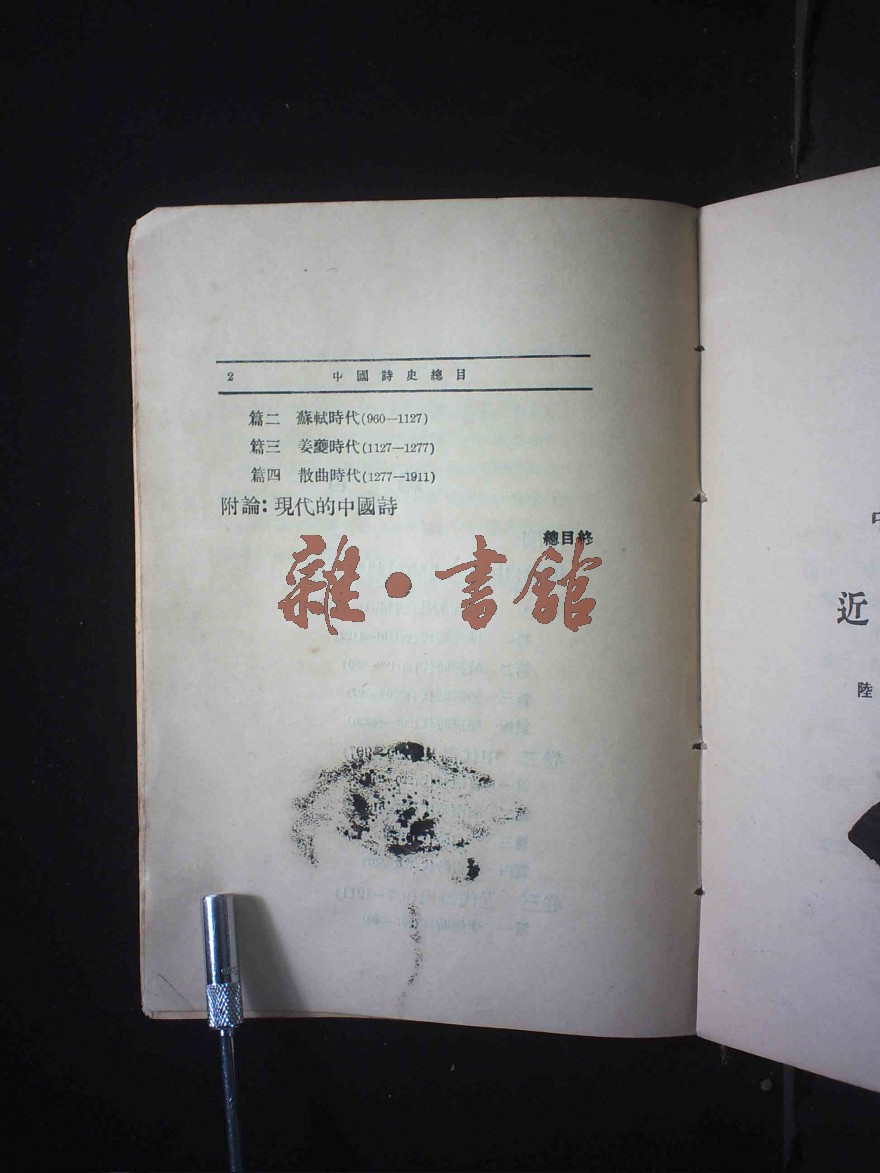 2 中國詩史總目
篇二 蘇軾時代(960—1127)
篇三 姜夔時代(1127—1277)
篇四 散曲時代(1277—1911)
附論：現代的中國詩
總目終
雜·書館
近
陸